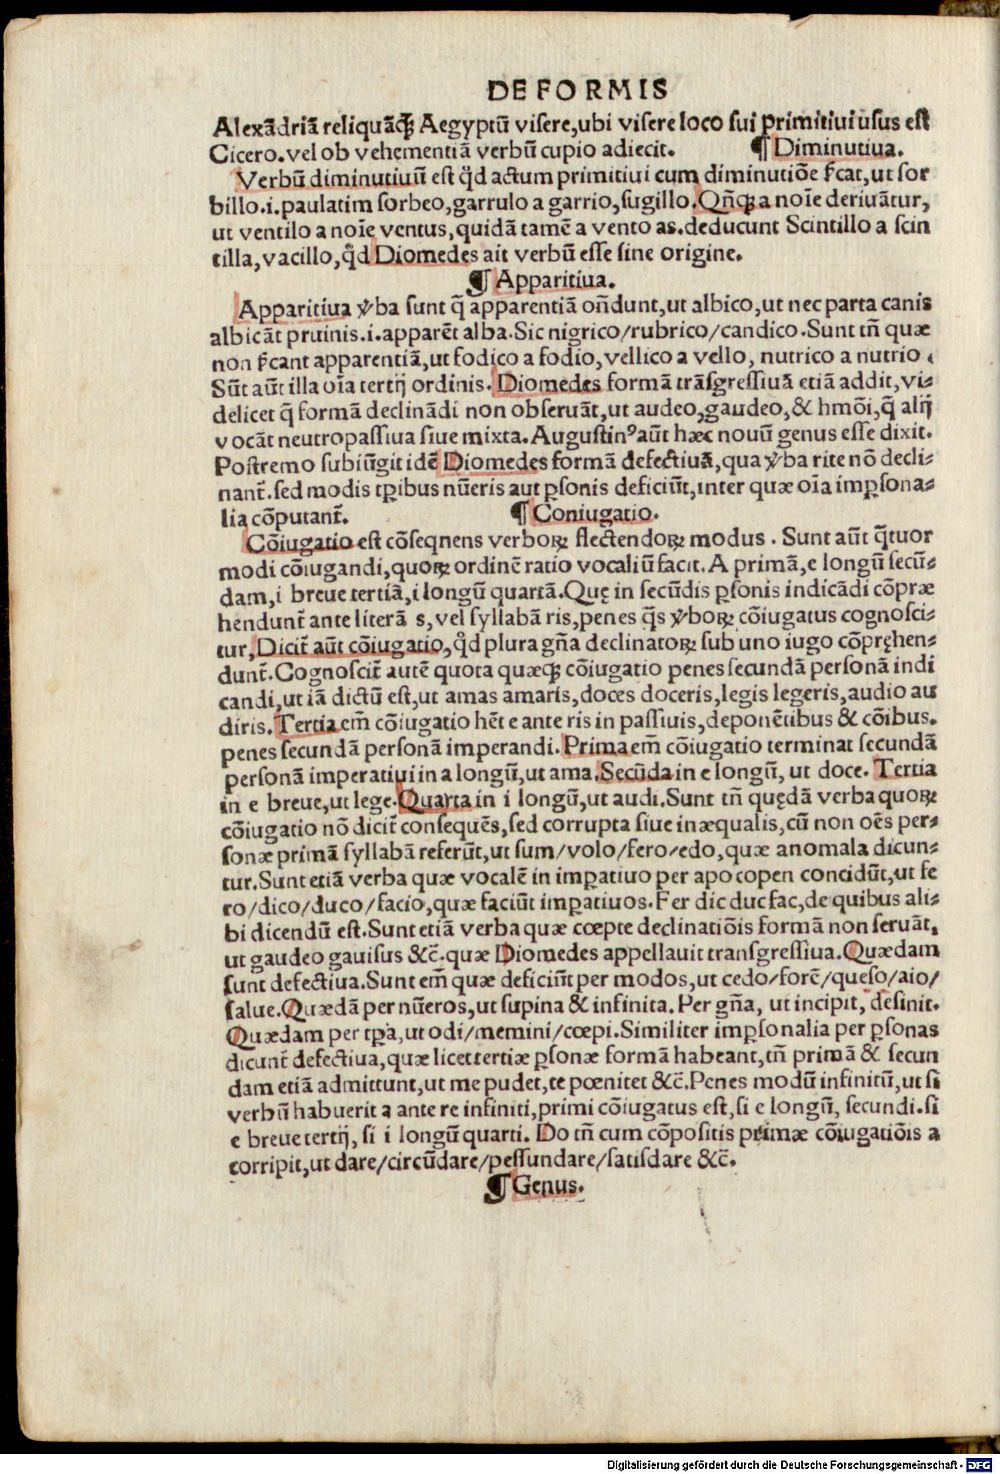 DE FORMIS
Alexãdriã reliquãqꝫ Aegyptũ visere,ubi visere loco sui primitiui usus est
Cicero.vel ob vehementiã verbũ cupio adiecit. ¶ Diminutiua.
Verbũ diminutiuũ est qd̃ actum primitiui cum diminutiõe s̃cat,ut sor
billo.i.paulatim sorbeo,garrulo a garrio,sugillo.Qñqꝫ a noĩe deriuãtur,
ut ventilo a noĩe ventus,quidã tamẽ a vento as.deducunt Scintillo a scin
tilla,vacillo,qd̃ Diomedes ait verbũ esse sine origine.
¶ Apparitiua.
Apparitiua v̾ba sunt q̃ apparentiã oñdunt,ut albico,ut nec parta canis
albicãt pruinis.i.apparẽt alba.Sic nigrico/rubrico/candico.Sunt tñ quæ
non s̃cant apparentiã,ut fodico a fodio,vellico a vello, nutrico a nutrio.
Sũt aũt illa oĩa tertij ordinis.Diomedes formã trãsgressiuã etiã addit,vi⸗
delicet q̃ formã declinãdi non obseruãt,ut audeo,gaudeo,& hmõi,q̃ alij
vocãt neutropassiua siue mixta.Augustinꝰ aũt hæc nouũ genus esse dixit.
Postremo subiũgit idẽ Diomedes formã defectiuã,qua v̾ba rite nõ decli⸗
nant̃.sed modis tꝑibus nũeris aut ꝑsonis deficiũt,inter quæ oĩa imꝑsona⸗
lia cõputant̃. ¶ Coniugatio.
Cõiugatio est cõseqnens verboꝝ flectendoꝝ modus. Sunt aũt q̃tuor
modi cõiugandi,quoꝝ ordinẽ ratio vocaliũ facit.A primã,e longũ secũ⸗
dam,i breue tertiã,i longũ quartã.Quę in secũdis ꝑsonis indicãdi cõpræ
hendunt̃ ante literã s,vel syllabã ris,penes q̃s v̾boꝝ cõiugatus cognosci⸗
tur,Dicit̃ aũt cõiugatio,qd̃ plura gñа declinatoꝝ sub uno iugo cõpręhen⸗
dunt̃.Cognoscit̃ autẽ quota quæqꝫ cõiugatio penes secundã personã indi
candi,ut iã dictũ est,ut amas amaris,doces doceris,legis legeris,audio au
diris.Tertia em̃ cõiugatio hẽt e ante ris in passiuis,deponẽtibus & cõibus.
penes secundã personã imperandi.Prima em̃ cõiugatio terminat secundã
personã imperatiui in a longũ,ut ama.Secũda in e longũ, ut doce. Tertia
in e breue,ut lege.Quarta in i longũ,ut audi.Sunt tñ quędã verba quoꝝ
cõiugatio nõ dicit̃ consequẽs,sed corrupta siue inæqualis,cũ non oẽs per⸗
sonæ primã syllabã referũt,ut sum/volo/fero/edo,quæ anomala dicun⸗
tur.Sunt etiã verba quæ vocalẽ in imꝑatiuo per apocopen concidũt,ut fe
ro/dico/duco/facio,quæ faciũt imꝑatiuos.Fer dic duc fac,de quibus ali⸗
bi dicendũ est.Sunt etiã verba quæ cœpte declinatiõis formã non seruãt,
ut gaudeo gauisus &c̃.quæ Diomedes appellauit transgressiua.Quædam
sunt defectiua.Sunt em̃ quæ deficiũt per modos,ut cedo/forẽ/queso/aio/
salue.Quædã per nũeros,ut supina & infinita.Per gñа, ut incipit, desinit.
Quædam per tꝑa,ut odi/memini/cœpi.Similiter imꝑsonalia per ꝑsonas
dicunt̃ defectiua,quæ licet tertiæ ꝑsonæ formã habeant,tñ primã & secun
dam etiã admittunt,ut me pudet,te pœnitet &c̃.Penes modũ infinitũ,ut si
verbũ habuerit a ante re infiniti,primi cõiugatus est,si e longũ, secundi.si
e breue tertij, si i longũ quarti. Do tñ cum cõpositis primæ cõiugatiõis a
corripit,ut dare/circũdare/pessundare/satisdare &c̃.
¶ Genus.
Digitalisierung gefördert durch die Deutsche Forschungsgemeinschaft - DFG